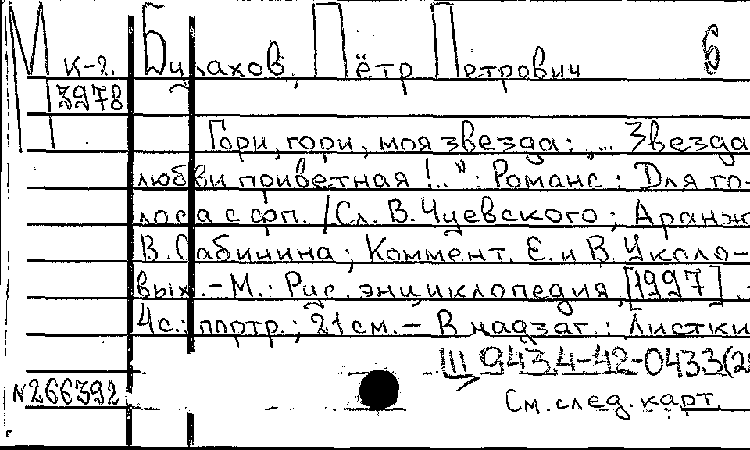 М к-2. Булахов, Пётр Петрович 6
3978
Гори, гори, моя звезда: „... Звезда
любви приветная!..": Романс: Для го-
лоса с фп. / Сл. В. Чуевского; Аранж
В. Сабинина; Коммент. Е. и В. Уколо-
вых. – М.: Рус. энциклопедия, [1997]. –
4с.: портр.; 21 см. – В надзаг.: Листки
Ш 943.4-42-0433(2
N266392
См. след. карт.